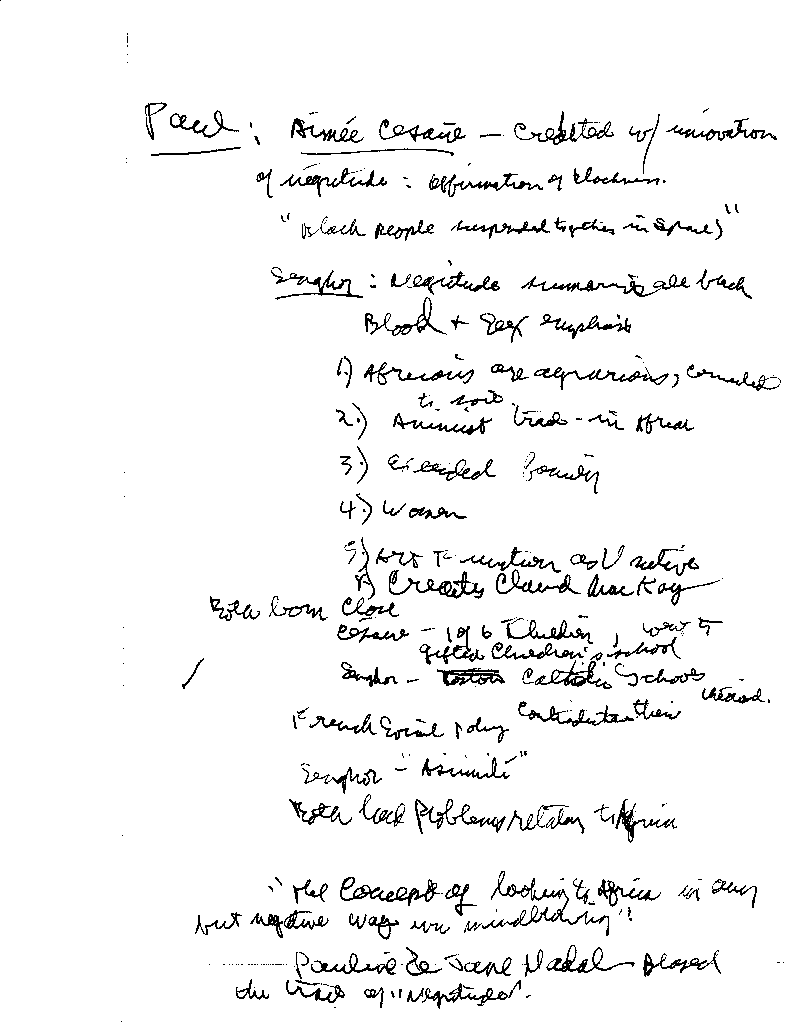 Paul: Aimée Cesaire – Credited w/ innovation
of negritude : affirmation of blackness.
"Black people suspended together in space)"
Senghor : Negitude summarizes all black
Blood + Sex emphasis
1) Africans are agrarians, connected
to soil
2.) Animist trad - in Africa
3.) Extended family
4.) Women
5) Art Function as
A) Credits Claud MacKay
Both born Close
Cesaire – 1 of 6 Children, went to
gifted Children's school
Senghor – Catholic Schools
French Social policy
Senghor – "Asimilé"
Both had Problems relating to Africa
"The Concept of looking to Africa in any
but negative way was mindblowing"!
Pauline & Jane Nadal – Blazed
the trail of "Negritude".